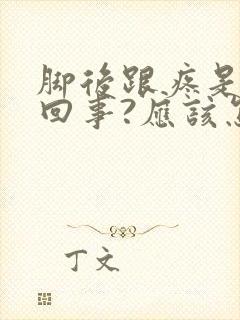 脚後跟疼是
回事?應該
丁文